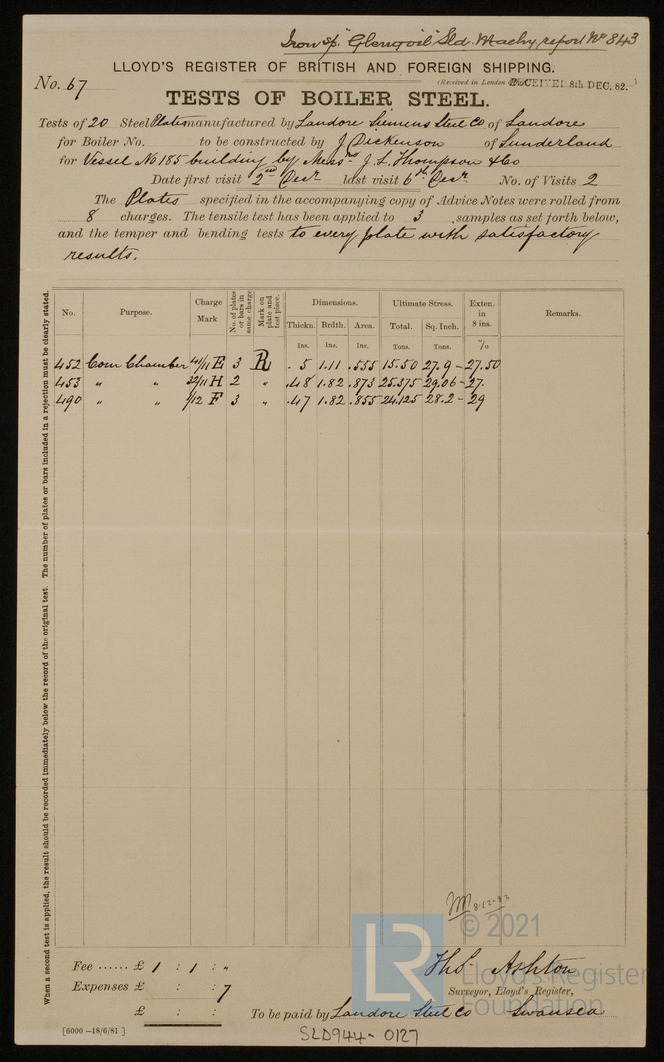 Iron sp. "Glengoil" Sld. Machy. report No 843
LLOYD'S REGISTER OF BRITISH AND FOREIGN SHIPPING.
No. 67
(Received in London RECEIVED 8th DEC. 82.)
TESTS OF BOILER STEEL.
Tests of 20 Steel Plates manufactured by Landore Siemens Steel Co of Landore
for Boiler No. to be constructed by J Dickenson of Sunderland
for Vessel No 185 building by Messrs J. L. Thompson & Co
Date first visit 2nd Decr last visit 6th Decr. No. of Visits 2
The Plates specified in the accompanying copy of Advice Notes were rolled from
8 charges. The tensile test has been applied to 3 samples as set forth below,
and the temper and bending tests to every plate with satisfactory
results.
When a second test is applied, the result should be recorded immediately below the record of the original test. The number of plates or bars included in a rejection must be clearly stated.
No. Purpose. Charge Mark. No. of plates or bars in same charge Mark on plate and test piece. Dimensions. Ultimate Stress. Exten. in 8 ins. Remarks.
Thickn. Brdth. Area. Total. Sq. Inch.
Ins. Ins. Ins. Tons. Tons. %
452 Com Chamber /11 E 3 R .5 1.11 .555 15.50 27.9 - 27.50
453 " " /11 H 2 " .48 1.82 .873 25.375 29.06 - 27.
490 " " 1/12 F 3 " .47 1.82 .855 24.125 28.2 - 29
8.12.82
© 2021
LR
Lloyd's Register
Foundation
Fee ...... £ 1 : 1 : "
Thos. Ashton
Expenses £ : : 7
Surveyor, Lloyd's Register,
£ : :
To be paid by Landore Steel Co Swansea
[6000 -18/6/81]
SLD944-0127